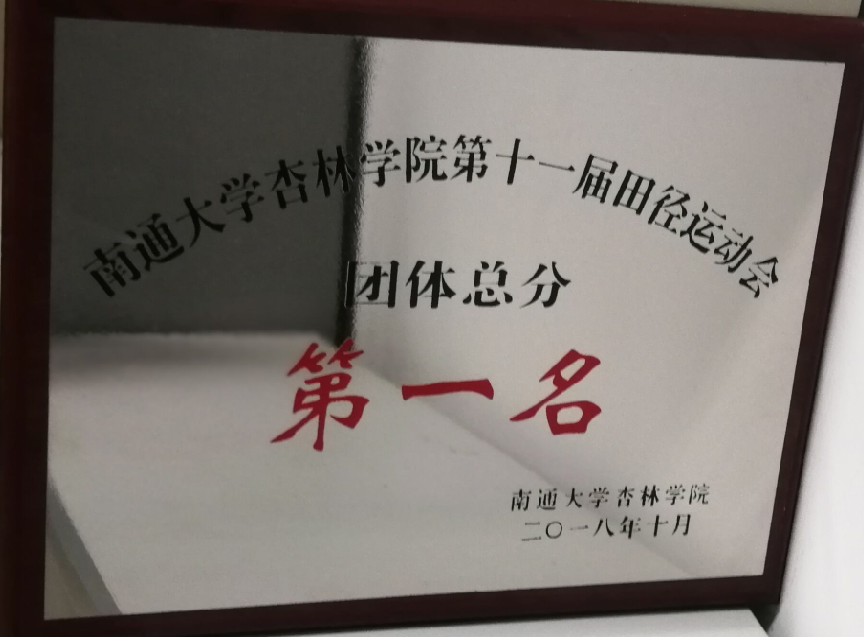 南通大学杏林学院第十一届田径运动会
团体总分
第一名
南通大学杏林学院
二〇一八年十月